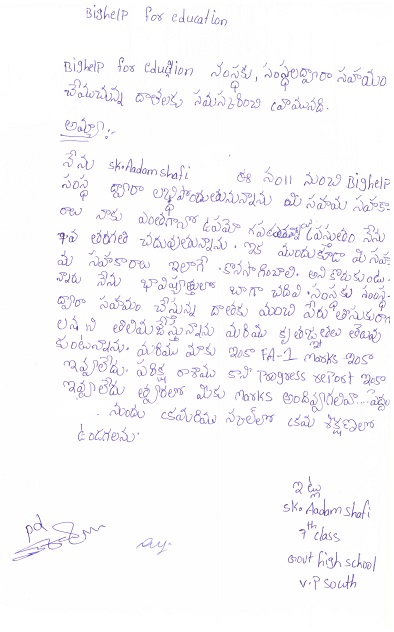 BigHelp for education
BigHelp for eduction సంస్థకు, సంస్థలద్వారా సహాయం
చేయుచున్న దాతలకు నమస్కరించి వ్రాయునది.
అమ్మా :-
నేను sk.Aadam shafi ఈ సం॥ నుంచి BigHelp
సంస్థ ద్వారా లబ్ధిపొందుతున్నాను మీ సహాయ సహకా
రాలు నాకు ఎంతగానో ప్రస్తుతం నేను
9వ తరగతి చదువుతున్నాను. ఇక ముందుకూడా మీ సహా
య సహకారాలు ఇలాగే కొనసాగించాలి. అని కోరుకుంటు
న్నాను నేను భావిష్యత్తులో బాగా చదివి సంస్థకు సంస్థ
ద్వారా సహాయం చేస్తున్న దాతకు మంచి పేరు తీసుకురా
తెలియజేస్తున్నాను మరియు కృతజ్ఞతలు తెలుపు
కుంటున్నాను. మరియు మాకు ఇంకా FA-1 Marks ఇంకా
ఇవ్వలేదు. పరీక్ష రాశాము కాని Progress rePort ఇంకా
ఇవ్వలేదు త్వరలో మీకు Marks
ముందు క్రమశిక్షణలో
ఉండగలను.
ఇట్లు
sk.Aadam shafi
9th class
Govt high school
V.P south